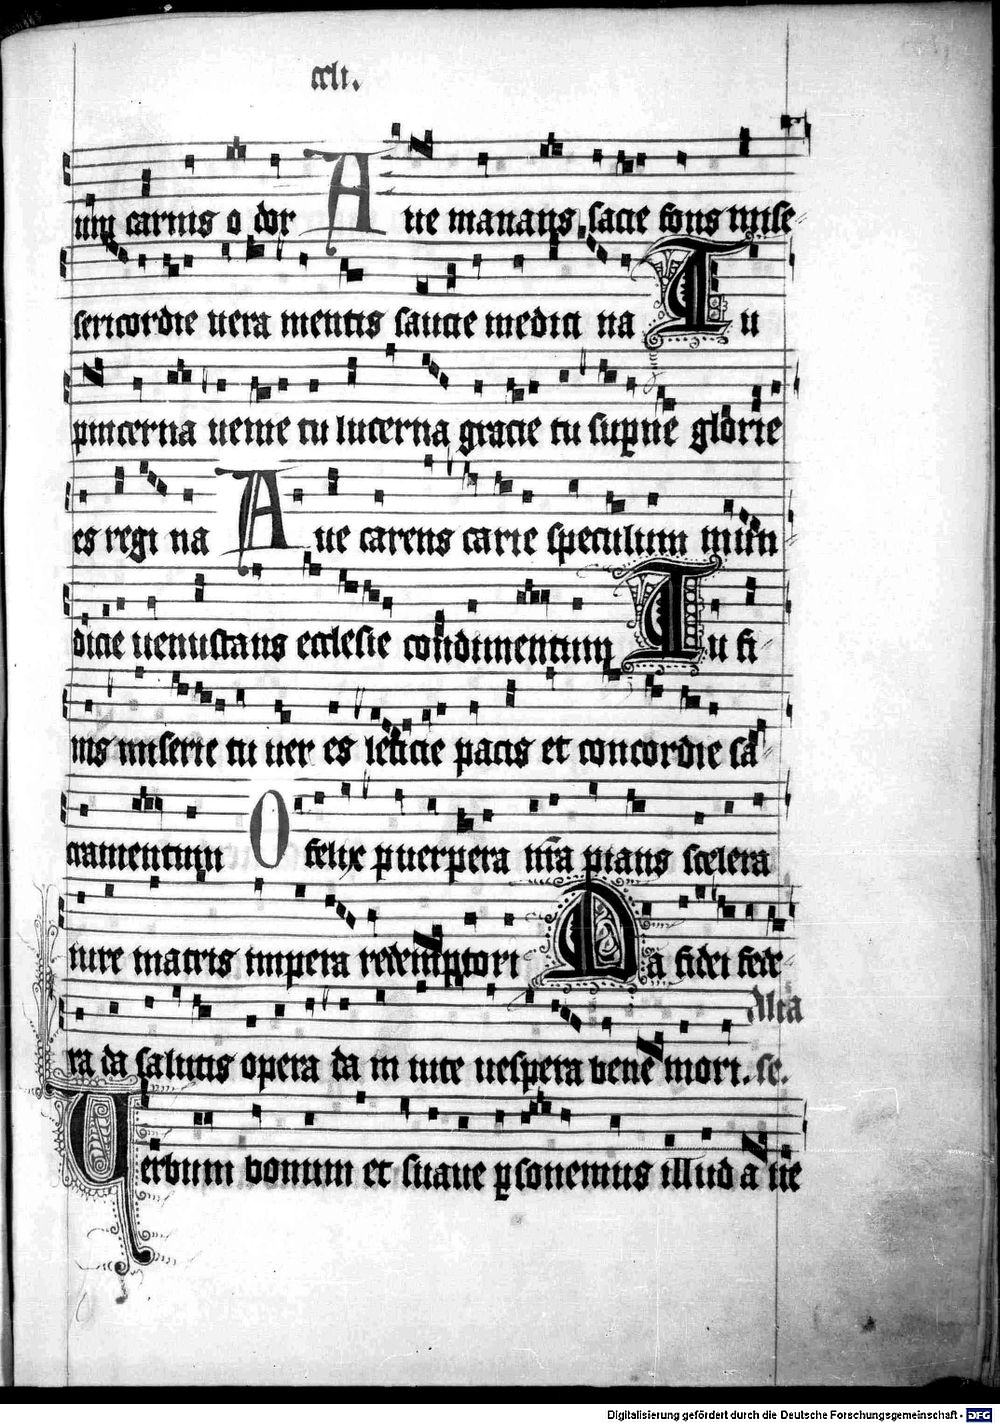 cclı.
um carnis o dor Aue manans sacie fons mise
sericordie uera mentis saucie medici na Tu
pincerna uenie tu lucerna gracie tu supne glorie
es regi na Aue carens carie speculum mun
dicie uenustans ecclesie condimentum Tu fi
nis miserie tu uer es leticie pacis et concordie sa
cramentum O felix puerpera nr̄a pians scelera
iure matris impera redemptori Da fidei fede
Alia
ra da salutis opera da in uite uespera bene mori. se.
Uerbum bonum et suaue psonemus illud aue
Digitalisierung gefördert durch die Deutsche Forschungsgemeinschaft - DFG